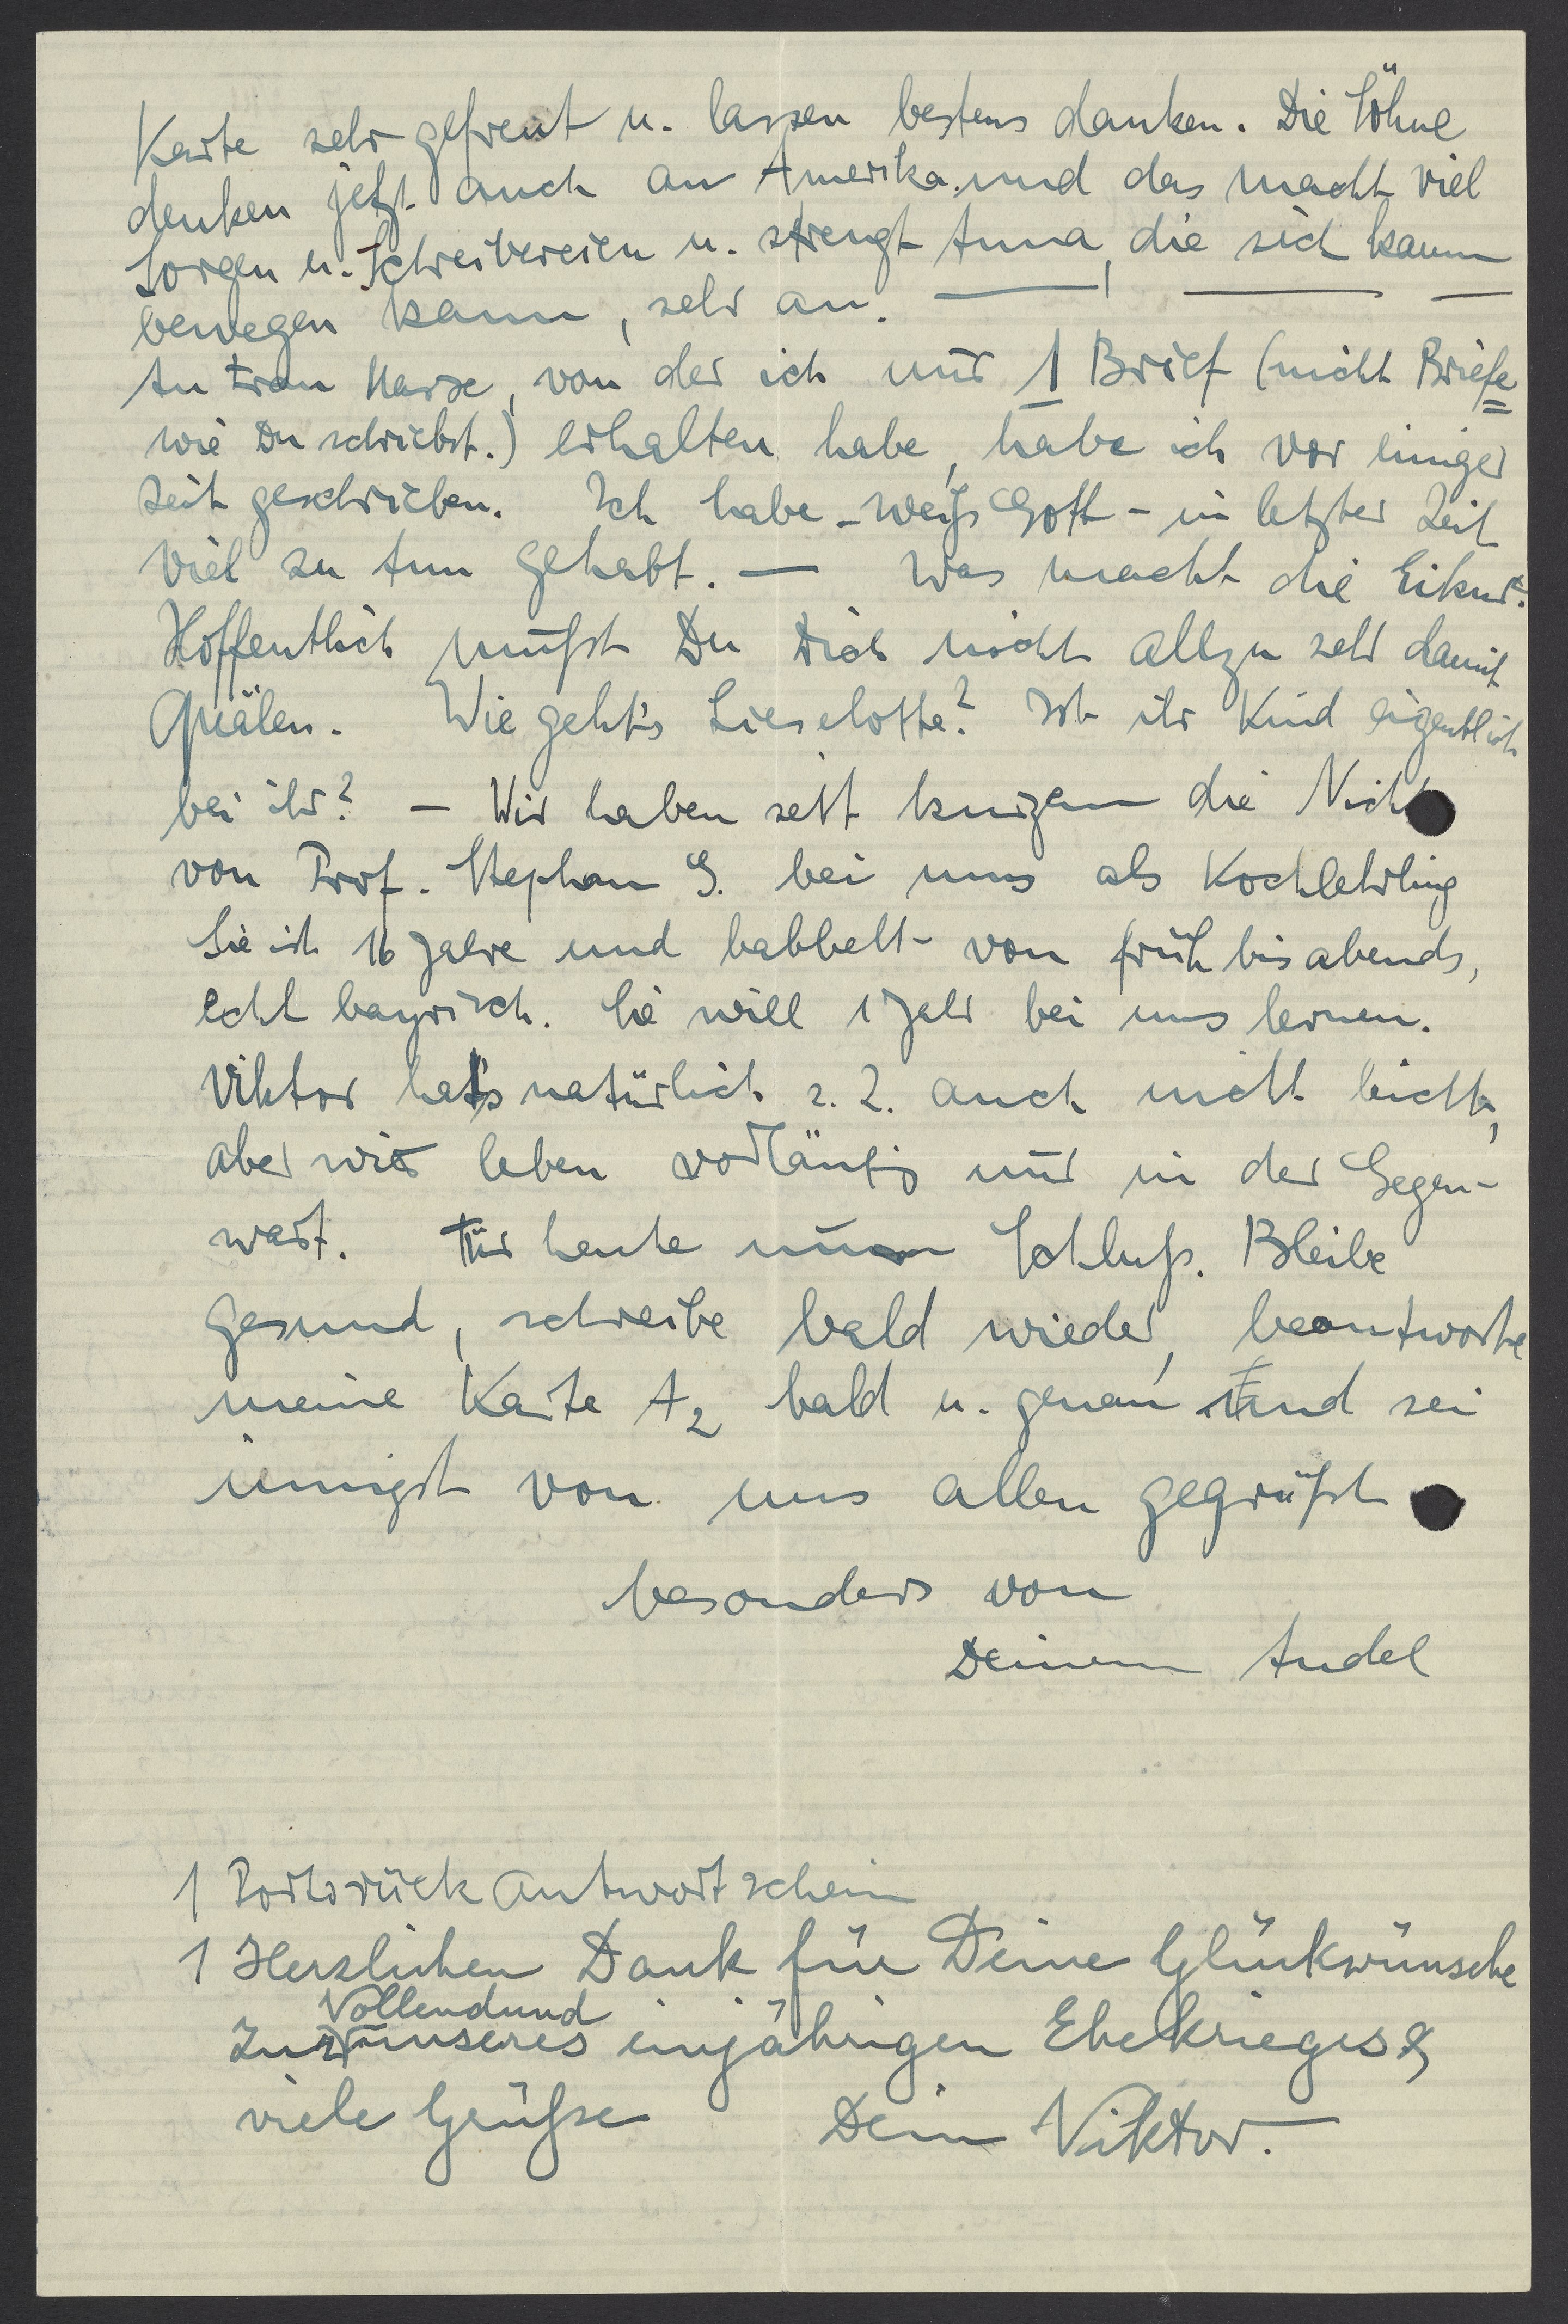 Karte sehr gefreut u. lassen bestens danken. Die Söhne
denken jetzt auch an Amerika und das macht viel
Sorgen u. Schreibereien u. strengt Anna, die sich kaum
bewegen kann, sehr an. — — —
An Frau Marx, von der ich nur 1 Brief (nicht Briefe
wie Du schriebst.) erhalten habe, habe ich vor einiger
Zeit geschrieben. Ich habe - weiß Gott - in letzter Zeit
viel zu tun gehabt. — Was macht die
Hoffentlich mußt Du Dich nicht allzu sehr damit
quälen. Wie geht's Lieselotte? Ist ihr Kind eigentlich
bei ihr? — Wir haben seit kurzem die Nichte
von Prof. Stephan G. bei uns als Kochlehrling
Sie ist 16 Jahre und babbelt von früh bis abends,
echt bayrisch. Sie will 1 Jahr bei uns lernen.
Viktor hat's natürlich z. Z. auch nicht leicht,
aber wir leben vorläufig nur in der Gegen-
wart. Für heute nun Schluß. Bleibe
gesund, schreibe bald wieder, beantworte
meine Karte A2 bald u. genau und sei
innigst von uns allen gegrüßt
besonders von
Deinem Andel
1 Portorückantwortschein
1 Herzlichen Dank für Deine Glückwünsche
Vollendund
zur unseres einjährigen Ehekrieges &
viele Grüße Dein Viktor.